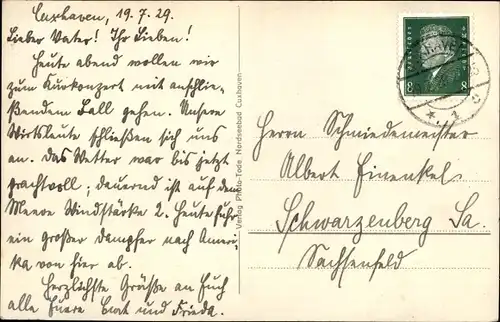 Cuxhaven, 19.7.29.
Lieber Vater! Ihr Lieben!
Heute abend wollen wir
zum Kurkonzert mit anschlie-
ßendem Ball gehen. Unsere
Wirtsleute schließen sich uns
an. Das Wetter war bis jetzt
prachtvoll; dauernd ist auf dem
Meere Windstärke 2. Heute fuhr
ein großer Dampfer nach Ameri-
ka von hier ab.
Herzlichste Grüße an Euch
alle Eure und Frieda.
Verlag Photo-Tede, Nordseebad Cuxhaven
8 8
Herrn Schmiedemeister
Albert
Schwarzenberg Sa.
Sachsenfeld